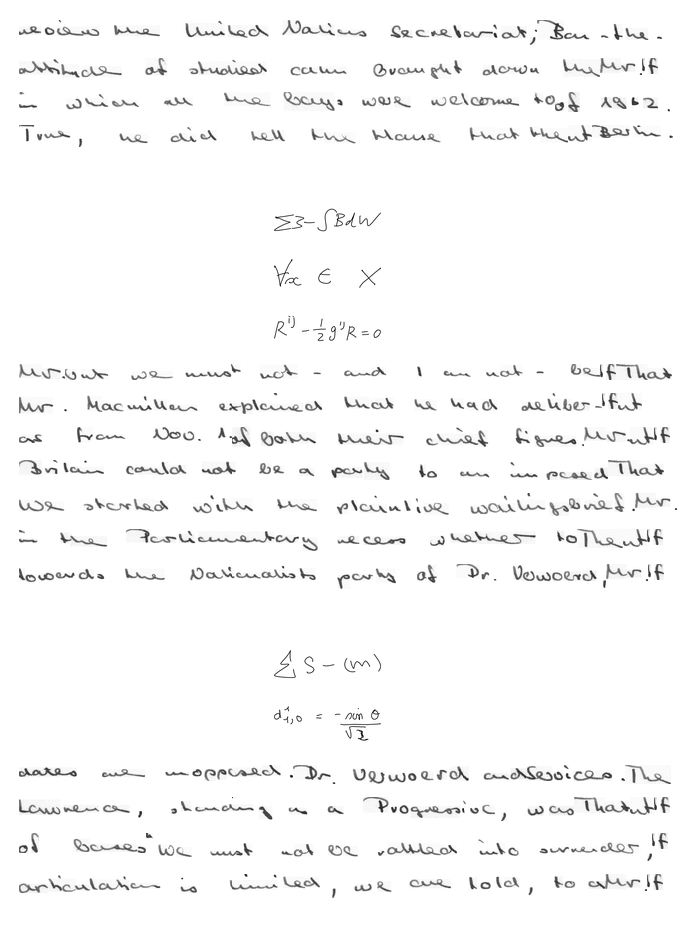 review the United Nations Secretariat; Ban - the -
attitude of studied calm brought down the Mr. If
in which all the bays were welcome to of 1962.
True, he did tell the House that the Berlin.
∑3-∫BdW
∀x ∈ X
R^{ij} - \frac{1}{2} g^{ij} R = 0
Mr. but we must not - and I am not - be If That
Mr. Macmillan explained that he had deliber- If
as from Nov. 1 of both their chief figures. Mr If
Britain could not be a party to an imposed That
We started with the plaintive wailings brief. Mr.
in the Parliamentary recess whether to The If
towards the Nationalists party of Dr. Verwoerd, Mr. If
∑ S - (m)
d^{1}_{1,0} = \frac{-\sin θ}{\sqrt{2}}
dates are unopposed. Dr. Verwoerd and Services. The
Lawrence, standing as a Progressive, was That If
of bases" We must not be rattled into surrender, If
articulation is limited, we are told, to a Mr. If